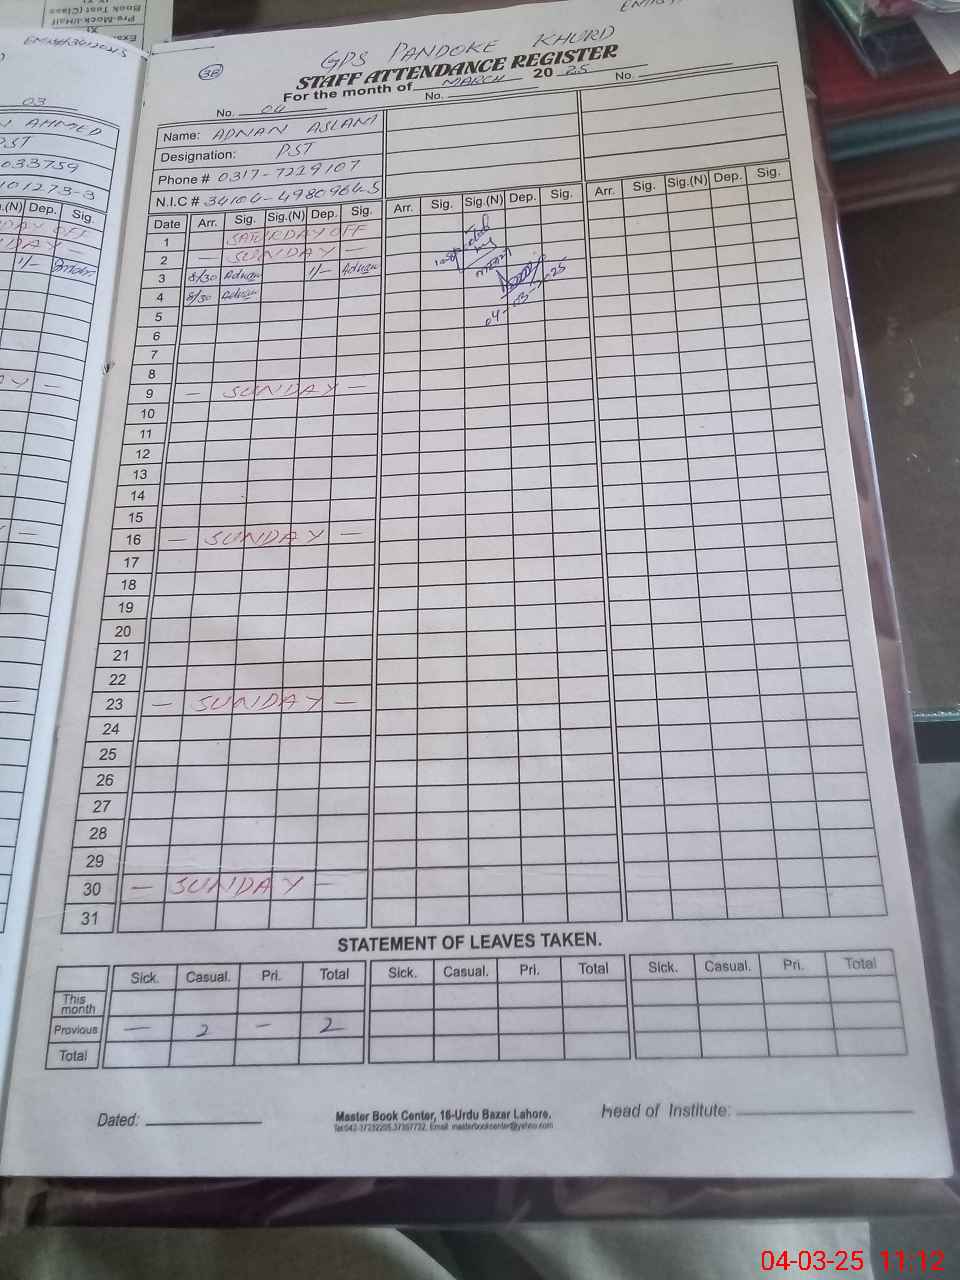 Pre-Mock-I/Half
Book Test (Class
03
AHMED
PST
033759
101273-3
(N) Dep. Sig.
DAY OFF
DAY —
1/-
GPS PANDOKE KHURD
38
STAFF ATTENDANCE REGISTER
For the month of MARCH 20 25
No. 04 No. No.
Name: ADNAN ASLAM
Designation: PST
Phone # 0317-7229107
N.I.C # 34104-4980964-5
Date Arr. Sig. Sig.(N) Dep. Sig. Arr. Sig. Sig.(N) Dep. Sig. Arr. Sig. Sig.(N) Dep. Sig.
1 SATURDAY OFF
2 — SUNDAY —
3 8/30 Adnan 1/- Adnan
4 8/30 Adnan
Inspected
by
04-03-2025
5
6
7
8
9 — SUNDAY —
10
11
12
13
14
15
16 — SUNDAY —
17
18
19
20
21
22
23 — SUNDAY —
24
25
26
27
28
29
30 — SUNDAY —
31
STATEMENT OF LEAVES TAKEN.
Sick. Casual. Pri. Total Sick. Casual. Pri. Total Sick. Casual. Pri. Total
This month
Previous — 2 — 2
Total
Dated: Head of Institute:
Master Book Center, 16-Urdu Bazar Lahore.
04-03-25 11:12